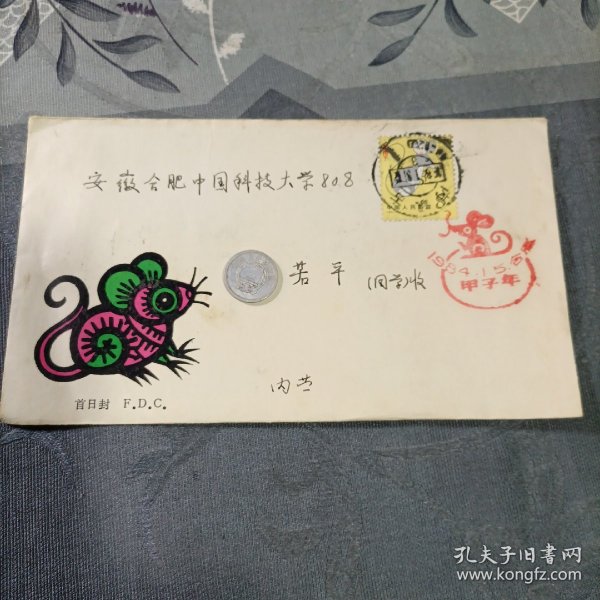 安徽合肥中国科技大学808
若平
(同学)收
内芒
首日封 F.D.C.
中国人民邮政
1984.1.5.
甲子年
孔夫子旧书网
www.kongfz.com